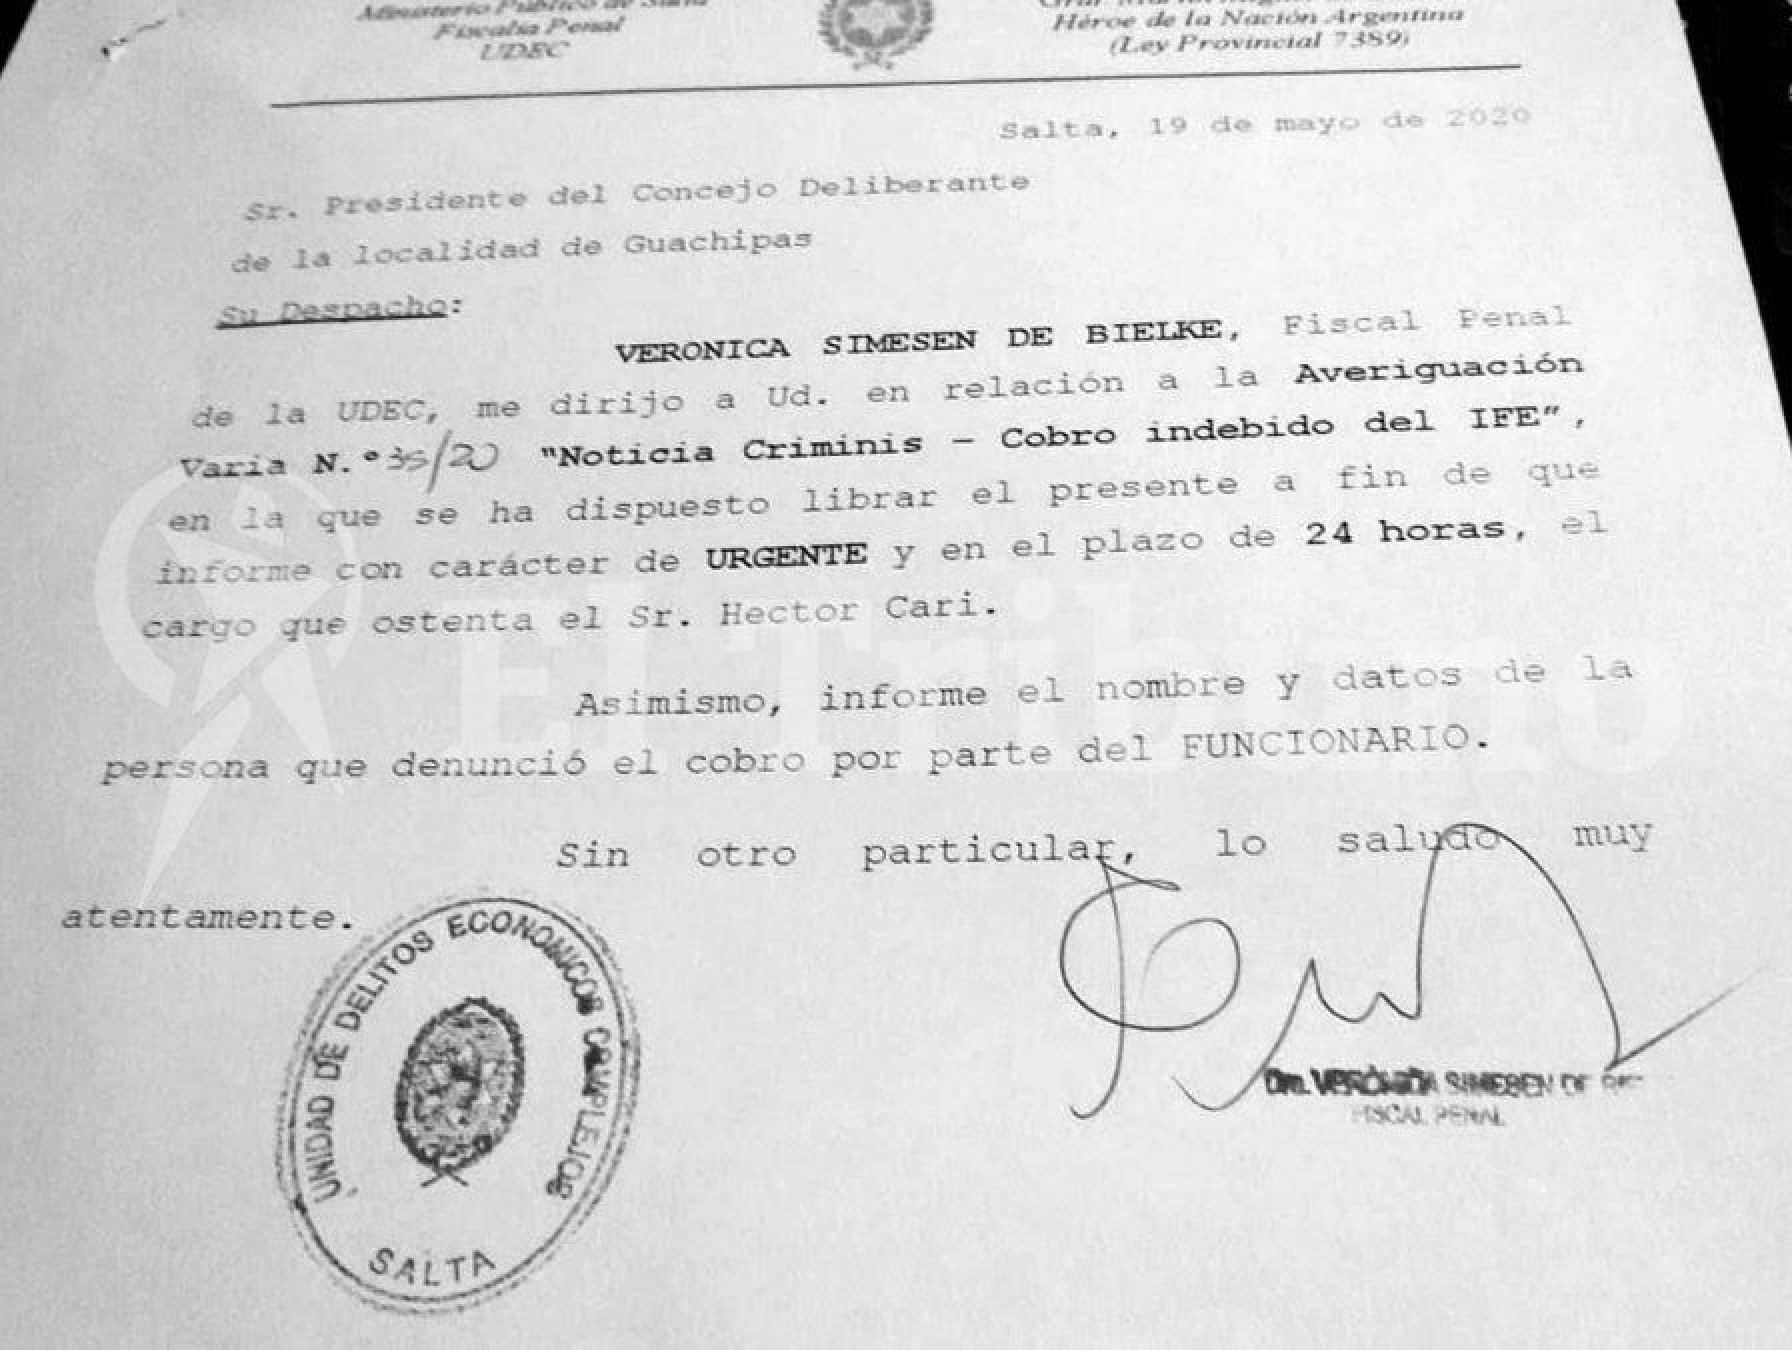 Ministerio Público de Salta
Fiscalía Penal
UDEC
Héroe de la Nación Argentina
(Ley Provincial 7389)
Salta, 19 de mayo de 2020
Sr. Presidente del Concejo Deliberante
de la localidad de Guachipas
Su Despacho:
VERONICA SIMESEN DE BIELKE, Fiscal Penal
de la UDEC, me dirijo a Ud. en relación a la Averiguación
Varia N.° 35/20 "Noticia Criminis – Cobro indebido del IFE",
en la que se ha dispuesto librar el presente a fin de que
informe con carácter de URGENTE y en el plazo de 24 horas, el
cargo que ostenta el Sr. Hector Cari.
Asimismo, informe el nombre y datos de la
persona que denunció el cobro por parte del FUNCIONARIO.
Sin otro particular, lo saludo muy
atentamente.
El Tribuno
UNIDAD DE DELITOS ECONOMICOS COMPLEJOS
SALTA
Dra. VERÓNICA SIMESEN DE
FISCAL PENAL